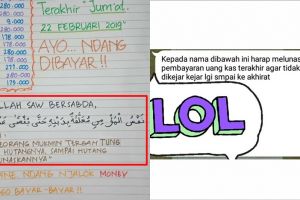 280.000
180.000
280.000
280.000
279.000
179.000
211.000
Terakhir - Jum'at.
22 FEBRUARI 2019
AYO... NDANG
DIBAYAR!!
LLAH SAW BERSABDA,
ORANG MUKMIN TERGAN TUNG
HUTANGNYA, SAMPAI HUTANG
UNASKANNYA"
NE NDANG NJALOK MONEY
GO BAYAR-BAYAR!!
Kepada nama dibawah ini harap melunas
pembayaran uang kas terakhir agar tidak
dikejar kejar lgi smpai ke akhirat
LOL